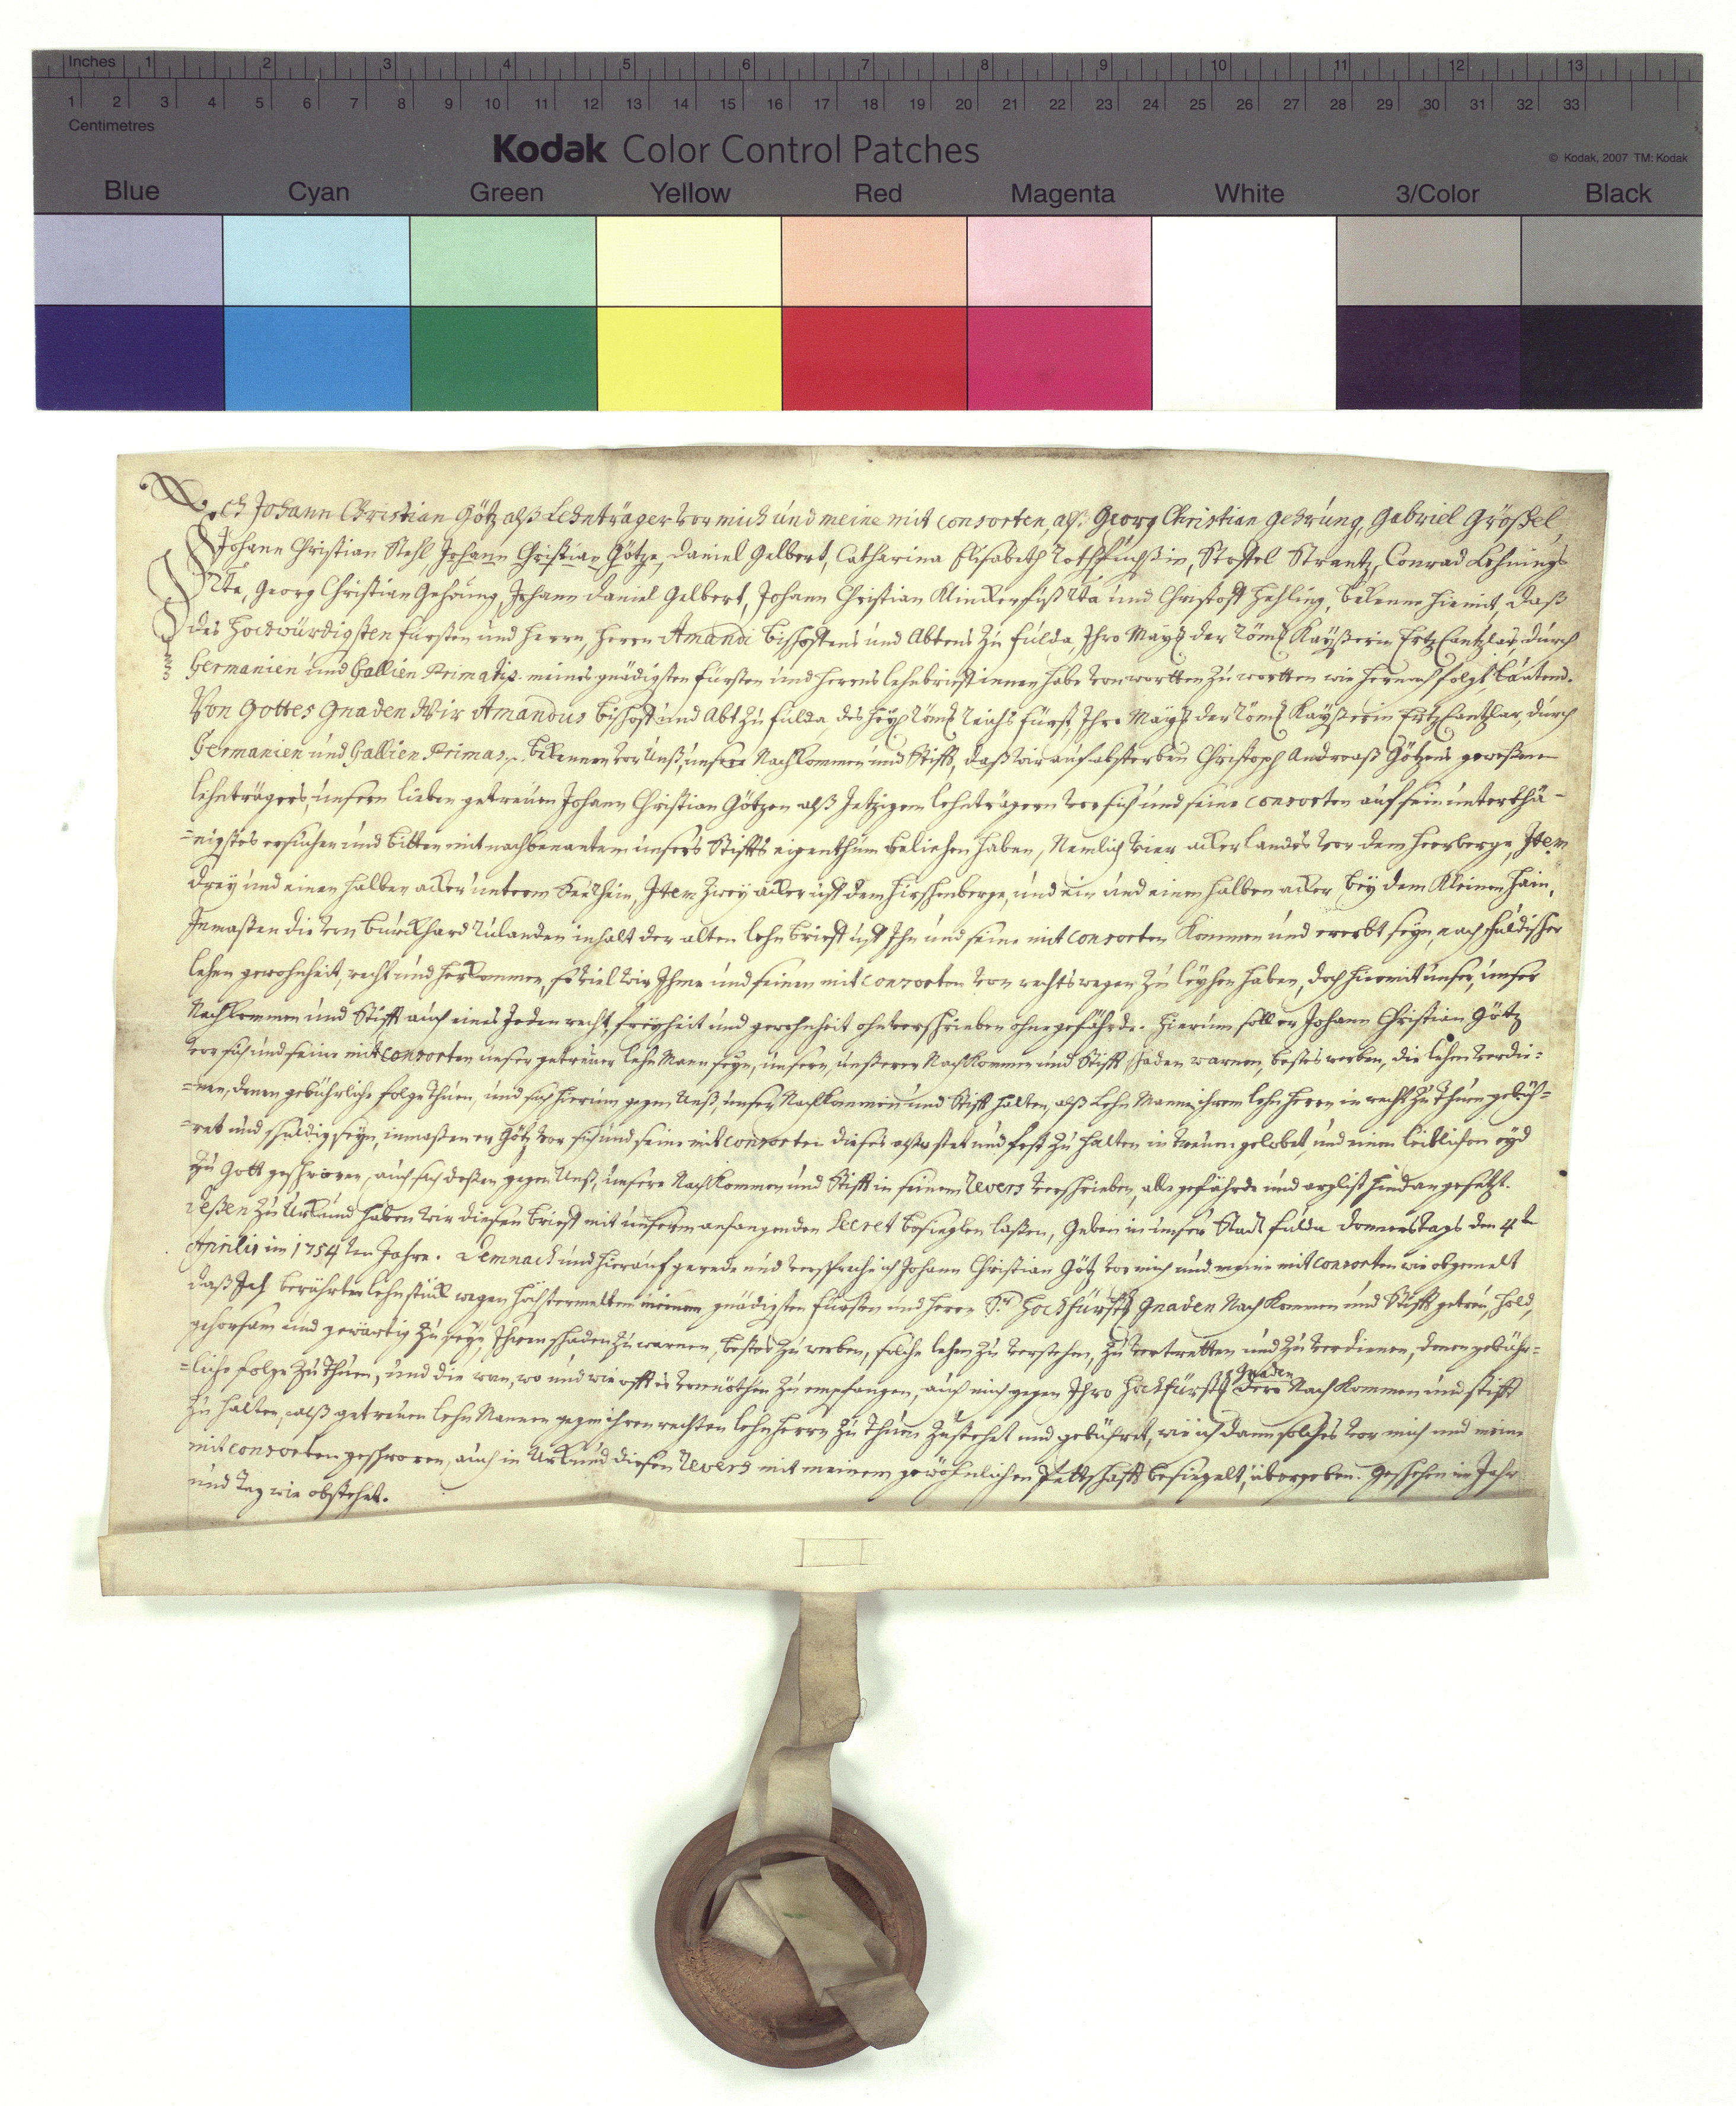 Inches 1 2 3 4 5 6 7 8 9 10 11 12 13
1 2 3 4 5 6 7 8 9 10 11 12 13 14 15 16 17 18 19 20 21 22 23 24 25 26 27 28 29 30 31 32 33
Centimetres
Kodak Color Control Patches
© Kodak, 2007 TM: Kodak
Blue Cyan Green Yellow Red Magenta White 3/Color Black
Ich Johann Christian Götz alß Lehnträger vor mich und meine mit consorten, alß Georg Christian Gehrung, Gabriel Größel,
Johann Christian Stehl, Johann Christian Götze, Daniel Gelbert, Catharina Elisabeth Rothfuchßin, Stoffel Strantz, Conrad Lehnings
Rta, Georg Christian Gehrung, Johann Daniel Gelbert, Johann Christian Klinckerfuß Rta und Christoff Hehling, bekenne hiemit, daß
des Hochwürdigsten Fürsten und Herrn, Herrn Amandi Bischoffens und Abtens zu Fulda, Ihro Mayt der Röms Kayßerin Ertz Cantzlar, durch
Germanien und Gallien Primatis meines gnädigsten Fürsten und Herrns lehnbrieff innen habe von wortten zu wortten wie hernach folgt lautend.
Von Gottes Gnaden Wir Amandus Bischoff und Abt zu Fulda, des Heyl Röms Reichs Fürst, Ihro Mayt der Röms Kayßerin Ertz Cantzlar, durch
Germanien und Gallien Primas, bekennen vor Unß, unsere Nachkommen und Stifft, daß wir auf absterben Christoph Andreaß Götzens geweßenen
lehnträgers, unsern lieben getreuen Johann Christian Götzen alß Jetzigem lehnträgern vor sich und seine consorten auf sein unterthä-
=nigstes ersuchen und bitten mit nachbenantem unsers Stiffts eigenthum beliehen haben, Nemlich vier acker landes vor dem Heerberge, Item
drey und einen halben acker unterm, Item zwey acker uff dem Hirschenberge, und ein und einen halben acker bey dem kleinen Hain,
Inmaßen die von Burckhard Rulanden inhalt der alten lehn brieff uff Ihn und seine mit consorten kommen und ererbt seyn, nach Fuldischer
lehen gewohnheit, recht und herkommen, so viel wir Ihme und seinen mit consorten von rechts wegen zu leyhen haben, doch hiermit unser, unser
Nachkommen und Stifft auch eines Jeden recht, freyheit und gewohnheit ohnverschrieben ohne gefährde. Hierum soll er Johann Christian Götz
vor sich und seine mit consorten unser getreuer lehn Mann seyn, unsern, unßerer Nachkommen und Stifft schaden warnen, bestes werben, die lehen verdie=
=nen, denen gebührliche folge thuen, und sich hierum gegen Unß, unser Nachkommen und Stifft halten, alß Lehn Manne ihrem lehn Herrn in recht zu thuen gebüh=
=ret und schuldig seyn, inmaßen er Götz vor sich und seine mit consorten dieses alß stet und fest zu halten in treuen gelobet, und einen leiblichen eyd
zu Gott geschworen, auch sich deßen gegen Unß, unsere Nachkommen und Stifft in seinem Revers verschrieben, alle gefährde und arglist hindan gesetzt.
Deßen zu Urkund haben wir diesen brieff mit unserm anhangenden Secret besieglen laßen, Geben in unser Stadt Fulda Donnerstags den 4ten
Aprilis im 1754ten Jahre. Demnach und hierauf gerede und verspreche ich Johann Christian Götz vor mich und meine mit consorten wie obgemelt
daß Ich berührter lehnstück wegen höchstermelten meinem gnädigsten Fürsten und Herrn Sr Hochfürstl Gnaden Nachkommen und Stifft getreu, hold,
gehorsam und gewärtig zu seyn, Ihren schaden zu warnen, bestes zu werben, solche lehen zu verstehen, zu vertretten und zu verdienen, denen gebühr=
=liche folge zu thuen, und die wan, wo und wie offt es vonnöthen zu empfangen, auch mich gegen Ihro Hochfürstl Gnaden dero Nachkommen und stifft
zu halten, alß getreuen lehn Mannen gegen ihren rechten lehn Herrn zu thuen zustehet und gebühret, wie ich dann solches vor mich und meine
mit consorten geschworen, auch in Urkund diesen Revers mit meinem gewöhnlichen Pettschafft besiegelt, übergeben. Geschehen im Jahr
und tag wie obstehet.